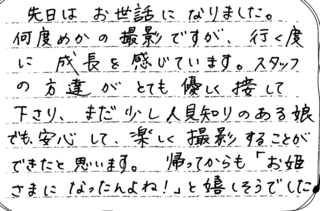 先日は お世話に なりました。
何度めかの 撮影ですが、行く度
に 成長を 感じています。スタッフ
の 方達が とても 優しく 接して
下さり、まだ 少し人見知りのある娘
でも、安心して、楽しく 撮影することが
できたと 思います。 帰ってからも「お姫
さまに なったんよね!」と嬉しそうでした。